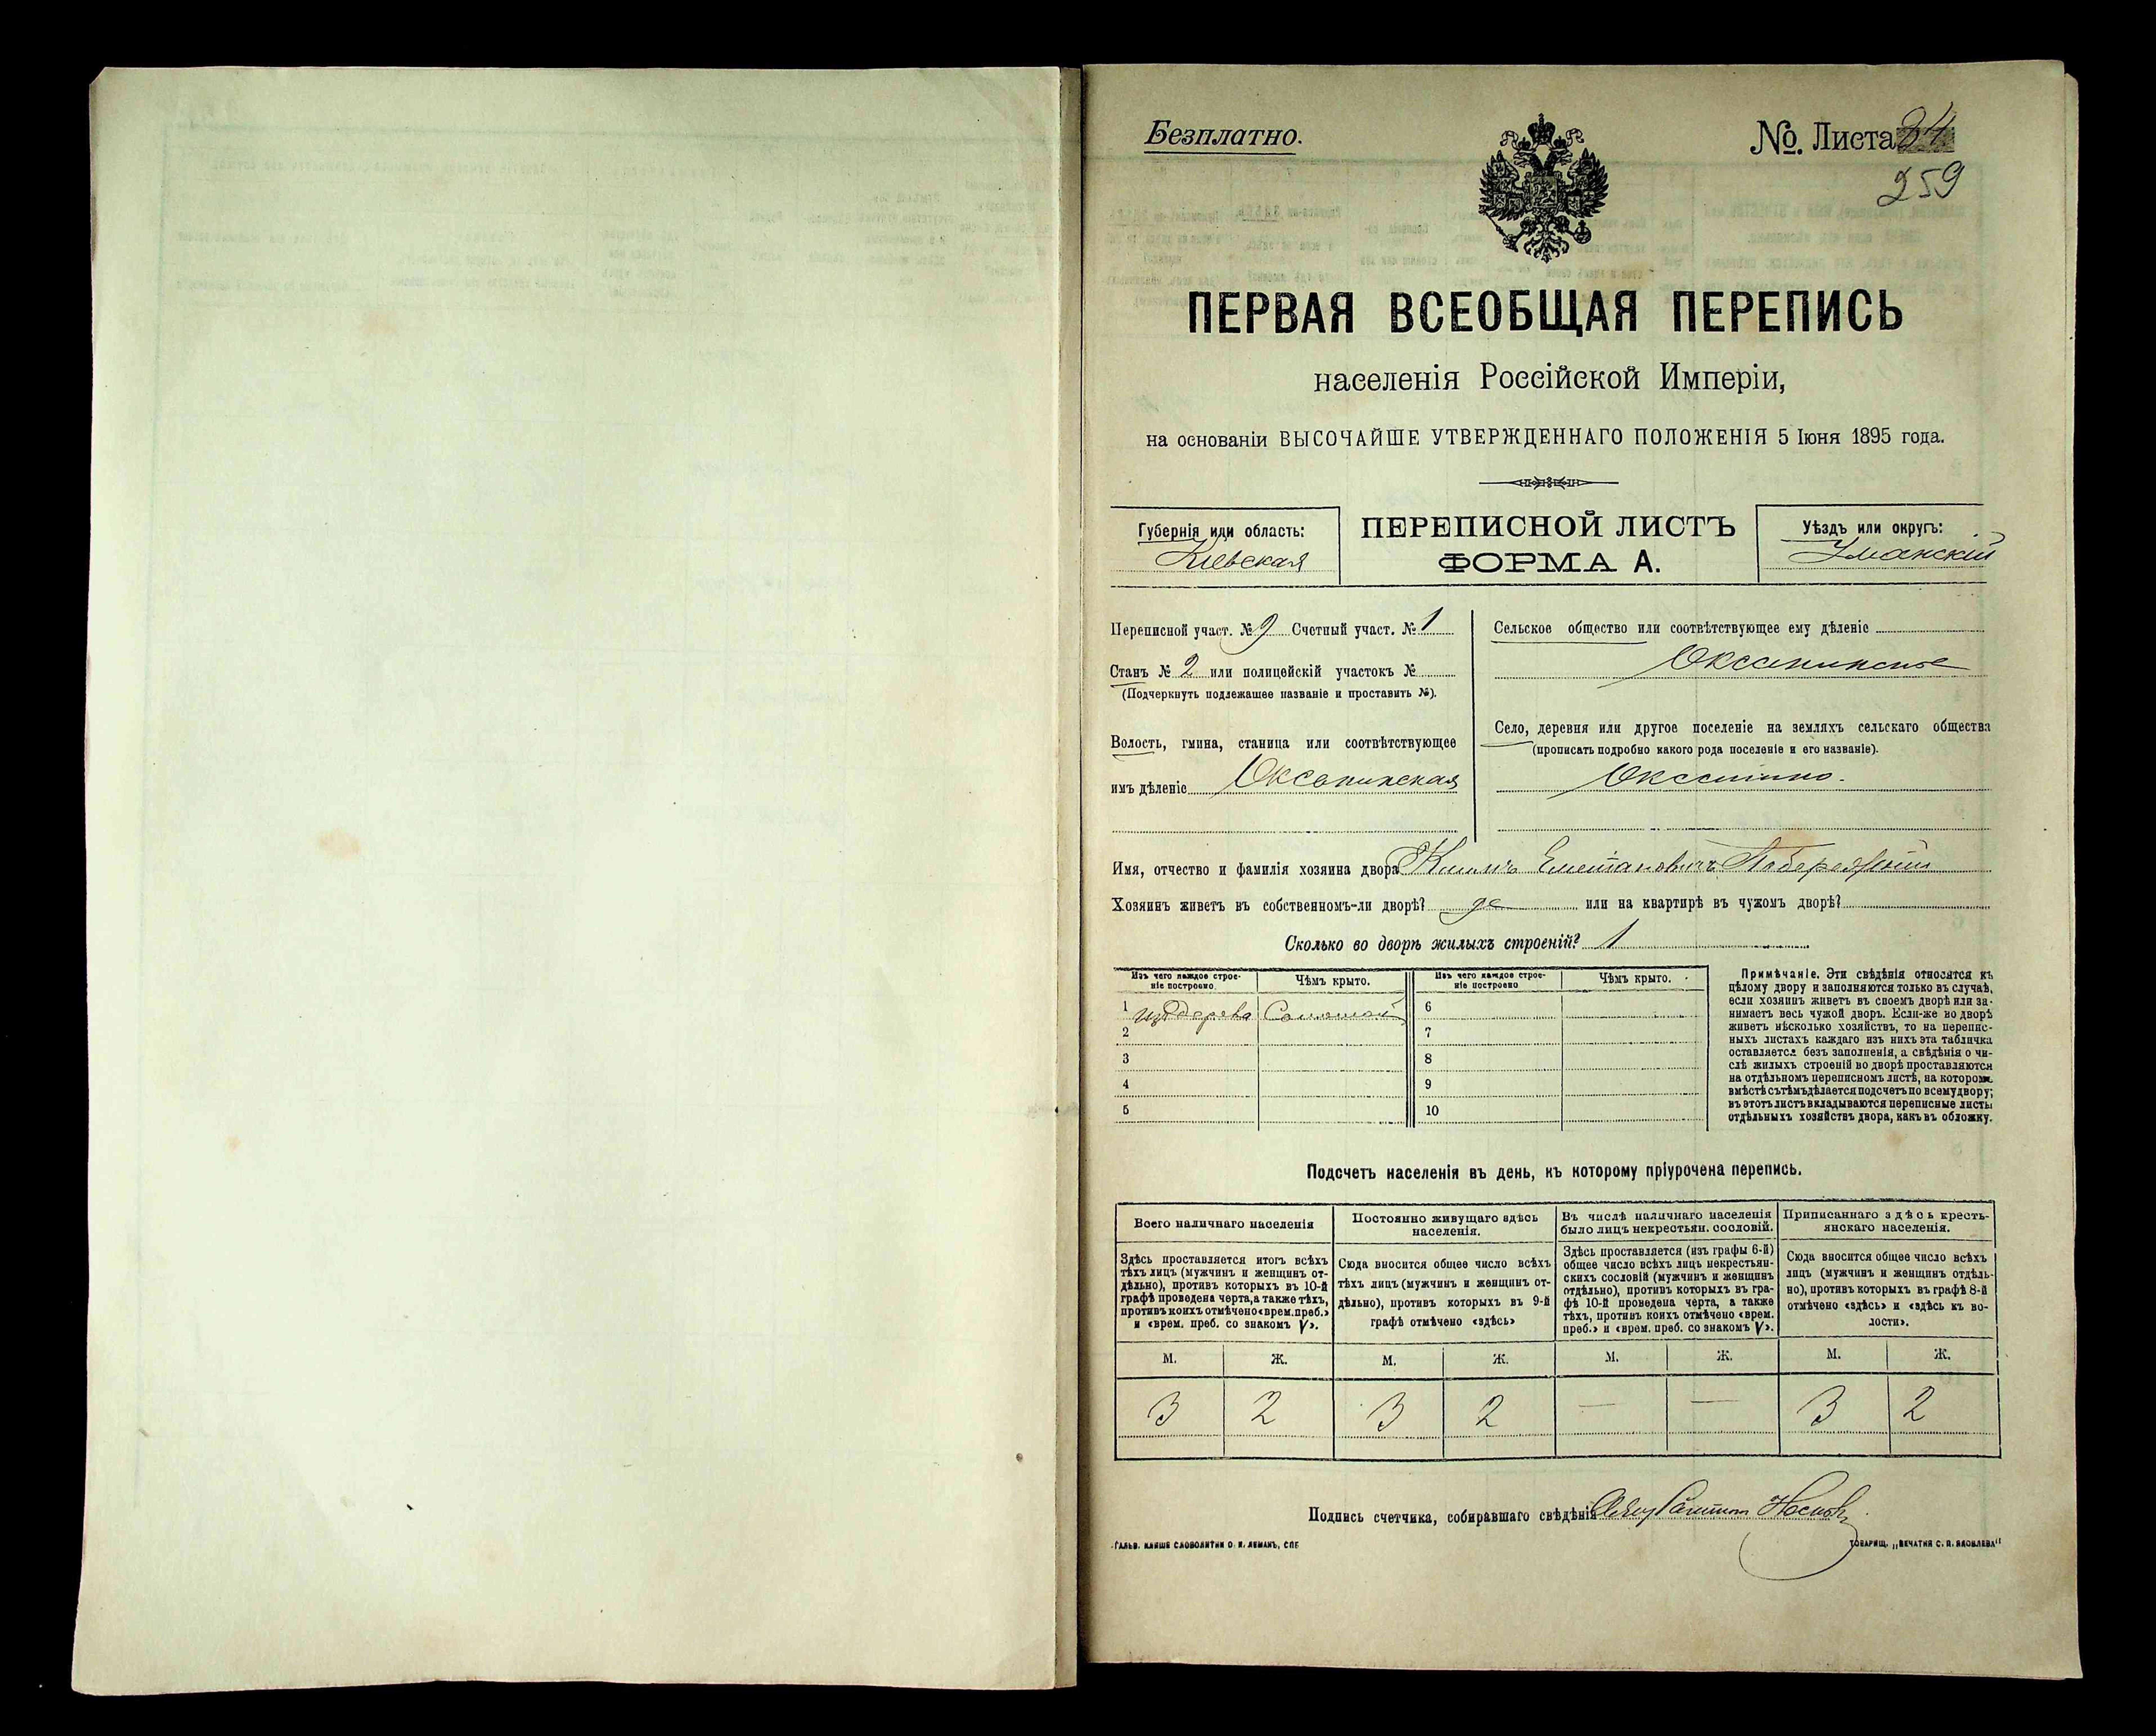 Безплатно.
№ Листа 24
259
ПЕРВАЯ ВСЕОБЩАЯ ПЕРЕПИСЬ
населенія Россійской Имперіи,
на основаніи ВЫСОЧАЙШЕ УТВЕРЖДЕННАГО ПОЛОЖЕНІЯ 5 Іюня 1895 года.
Губернія или область:
Кіевская
ПЕРЕПИСНОЙ ЛИСТЪ
ФОРМА А.
Уѣздъ или округъ:
Уманскій
Переписной участ. № 9 Счетный участ. № 1
Станъ № 2 или полицейскій участокъ №
(Подчеркнуть подлежащее названіе и проставить №).
Волость, гмина, станица или соотвѣтствующее
имъ дѣленіе Оксанинская
Сельское общество или соотвѣтствующее ему дѣленіе
Оксанинское
Село, деревня или другое поселеніе на земляхъ сельскаго общества
(прописать подробно какого рода поселеніе и его названіе).
Оксанино.
Имя, отчество и фамилія хозяина двора Климъ
Хозяинъ живетъ въ собственномъ-ли дворѣ? да или на квартирѣ въ чужомъ дворѣ?
Сколько во дворѣ жилыхъ строеній? 1
Изъ чего каждое строе-
ніе построено.
Чѣмъ крыто.
Изъ чего каждое строе-
ніе построено
Чѣмъ крыто.
1 изъ дерева Соломой 6
2 7
3 8
4 9
5 10
Примѣчаніе. Эти свѣдѣнія относятся къ
цѣлому двору и заполняются только въ случаѣ,
если хозяинъ живетъ въ своемъ дворѣ или за-
нимаетъ весь чужой дворъ. Если-же во дворѣ
живетъ нѣсколько хозяйствъ, то на перепис-
ныхъ листахъ каждаго изъ нихъ эта табличка
оставляется безъ заполненія, а свѣдѣнія о чи-
слѣ жилыхъ строеній во дворѣ проставляются
на отдѣльномъ переписномъ листѣ, на которомъ
вмѣстѣ съ тѣмъ дѣлается подсчетъ по всему двору;
въ этотъ листъ вкладываются переписные листы
отдѣльныхъ хозяйствъ двора, какъ въ обложку.
Подсчетъ населенія въ день, къ которому пріурочена перепись.
Всего наличнаго населенія
Здѣсь проставляется итогъ всѣхъ
тѣхъ лицъ (мужчинъ и женщинъ от-
дѣльно), противъ которыхъ въ 10-й
графѣ проведена черта, а также тѣхъ,
противъ коихъ отмѣчено «врем. преб.»
и «врем. преб. со знакомъ V».
Постоянно живущаго здѣсь
населенія.
Сюда вносится общее число всѣхъ
тѣхъ лицъ (мужчинъ и женщинъ от-
дѣльно), противъ которыхъ въ 9-й
графѣ отмѣчено «здѣсь»
Въ числѣ наличнаго населенія
было лицъ некрестьян. сословій.
Здѣсь проставляется (изъ графы 6-й)
общее число всѣхъ лицъ некрестьян-
скихъ сословій (мужчинъ и женщинъ
отдѣльно), противъ которыхъ въ гра-
фѣ 10-й проведена черта, а также
тѣхъ, противъ коихъ отмѣчено «врем.
преб.» и «врем. преб. со знакомъ V».
Приписаннаго здѣсь кресть-
янскаго населенія.
Сюда вносится общее число всѣхъ
лицъ (мужчинъ и женщинъ отдѣль-
но), противъ которыхъ въ графѣ 8-й
отмѣчено «здѣсь» и «здѣсь къ во-
лости».
М. Ж. М. Ж. М. Ж. М. Ж.
3 2 3 2 — — 3 2
Подпись счетчика, собиравшаго свѣдѣнія
ГАЛЬВ. КЛИШЕ СЛОВОЛИТНИ О. И. ЛЕМАНЪ, СПБ
ТОВАРИЩ. „ПЕЧАТНЯ С. П. ЯКОВЛЕВА"